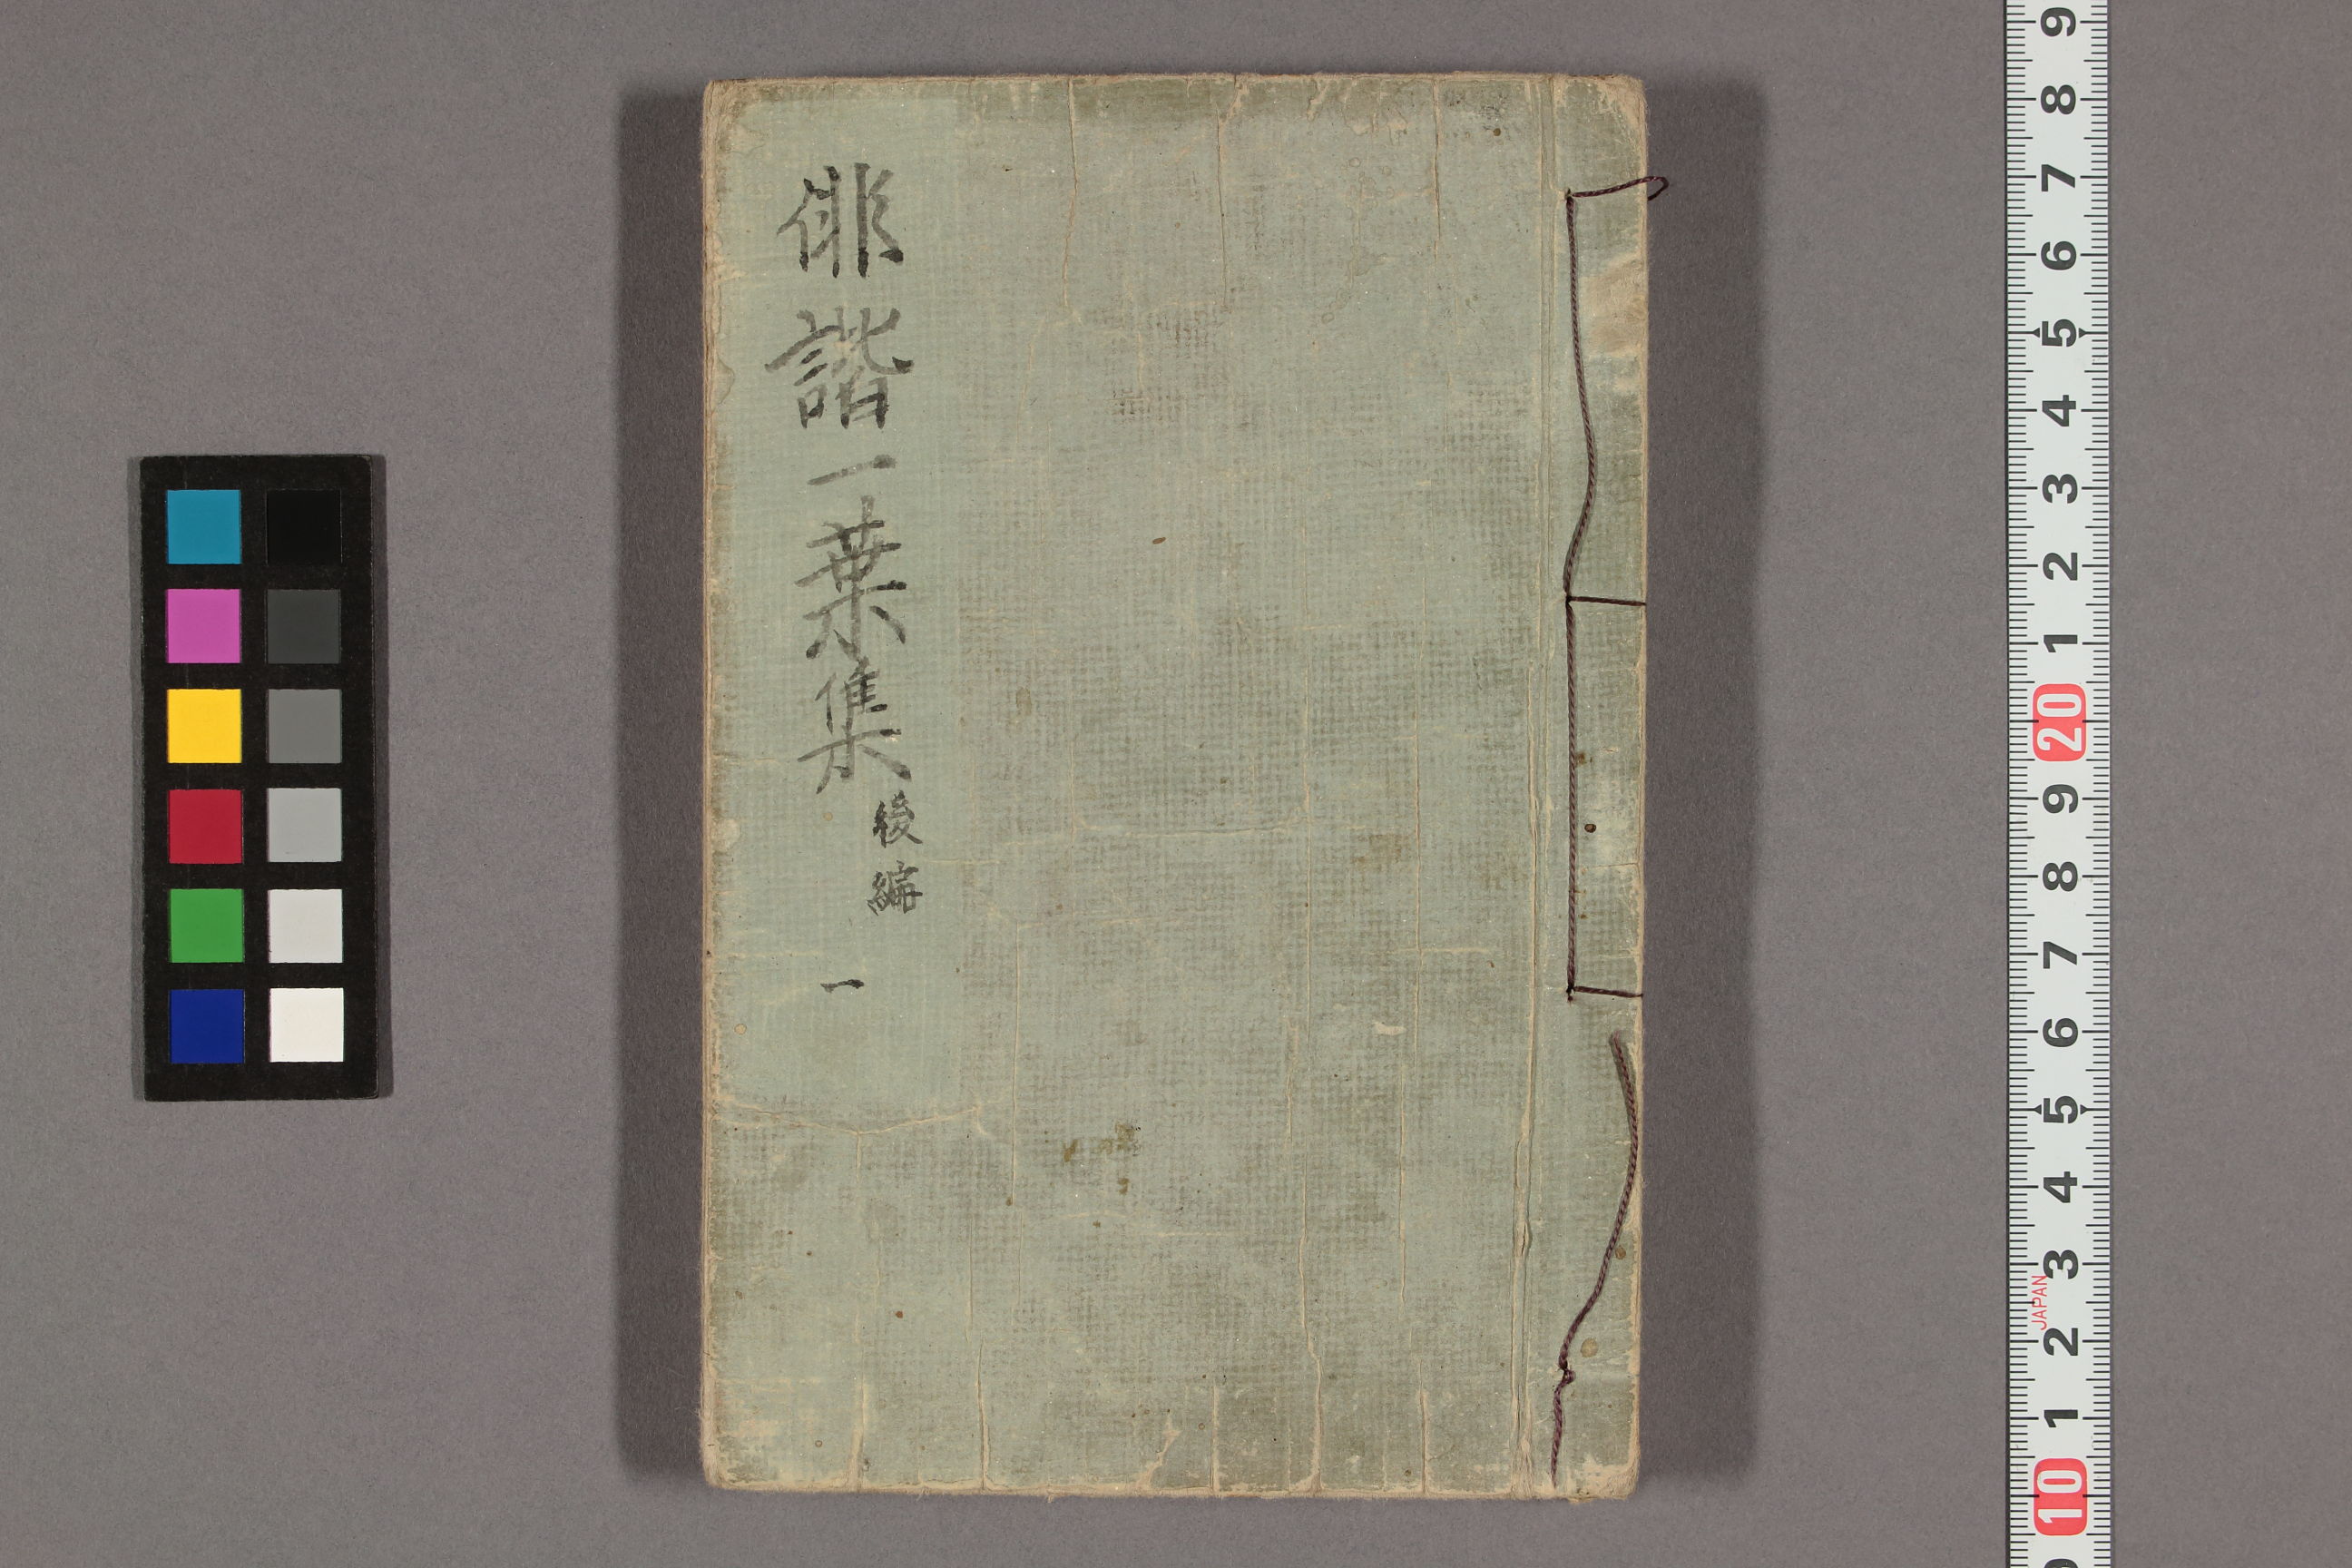 俳諧一葉集
後編
一
9
8
7
6
5
4
3
2
1
20
9
8
7
6
5
4
3
JAPAN
2
1
10